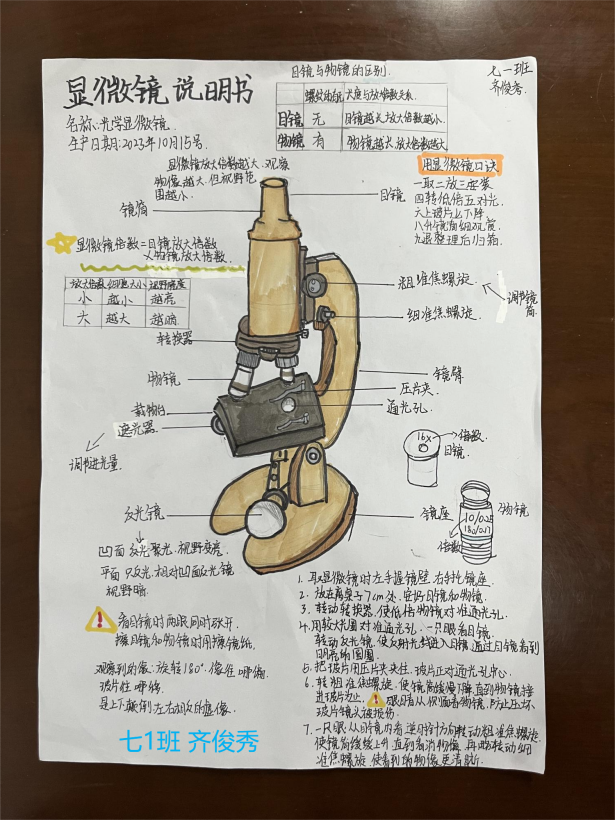 目镜与物镜的区别.
七一班
齐俊秀.
显微镜说明书
螺纹的有无 大度与放大倍数关系.
目镜 无 目镜越大,放大倍数越小.
物镜 有 物镜越长,放大倍数越大
名称:光学显微镜.
生产日期:2023年10月15号.
显微镜放大倍数越大、观察
物像越大,但视野范
围越小.
用显微镜口诀
一取二放三安装
四转低倍五对光
六上玻片七下降
八升镜筒细观赏
九退整理后归箱.
镜筒
目镜
显微镜倍数=目镜放大倍数
×物镜放大倍数.
放大倍数 细胞大小 视野亮度
小 越小 越亮
大 越大 越暗
粗准焦螺旋.
调节镜筒.
细准焦螺旋.
转换器
物镜
镜臂
压片夹.
载物台
通光孔.
遮光器.
调节进光量.
16X
倍数.
目镜.
反光镜
镜座
物镜
10/0.25
倍数
凹面 反光聚光.视野变亮.
平面 只反光,相对凹面反光镜
视野暗.
看目镜时两眼同时张开.
擦目镜和物镜时用擦镜纸.
观察到的像:旋转180°.像在哪偏
玻片往哪移.
是上下颠倒左右相反的虚像.
1. 取显微镜时左手握镜壁,右手托镜座.
2. 放在离桌子7cm处,安好目镜和物镜.
3. 转动转换器,使低倍物镜对准通光孔.
4. 用较大光圈对准通光孔.一只眼看目镜.
转动反光镜,使反射光线进入目镜,通过目镜看到
明亮的圆圈.
5. 把玻片用压片夹夹住.玻片正对通光孔中心.
6. 转粗准焦螺旋,使镜筒缓慢下降,直到物镜接
进玻片为止.眼睛看从侧面看物镜,防止压坏
玻片镜头被损伤.
7. 一只眼从目镜内看 逆时针方向转动粗准焦螺旋.
使镜筒缓缓上升,直到看清物像,再略转动细
准焦螺旋,使看到的物像更清晰.
七1班 齐俊秀